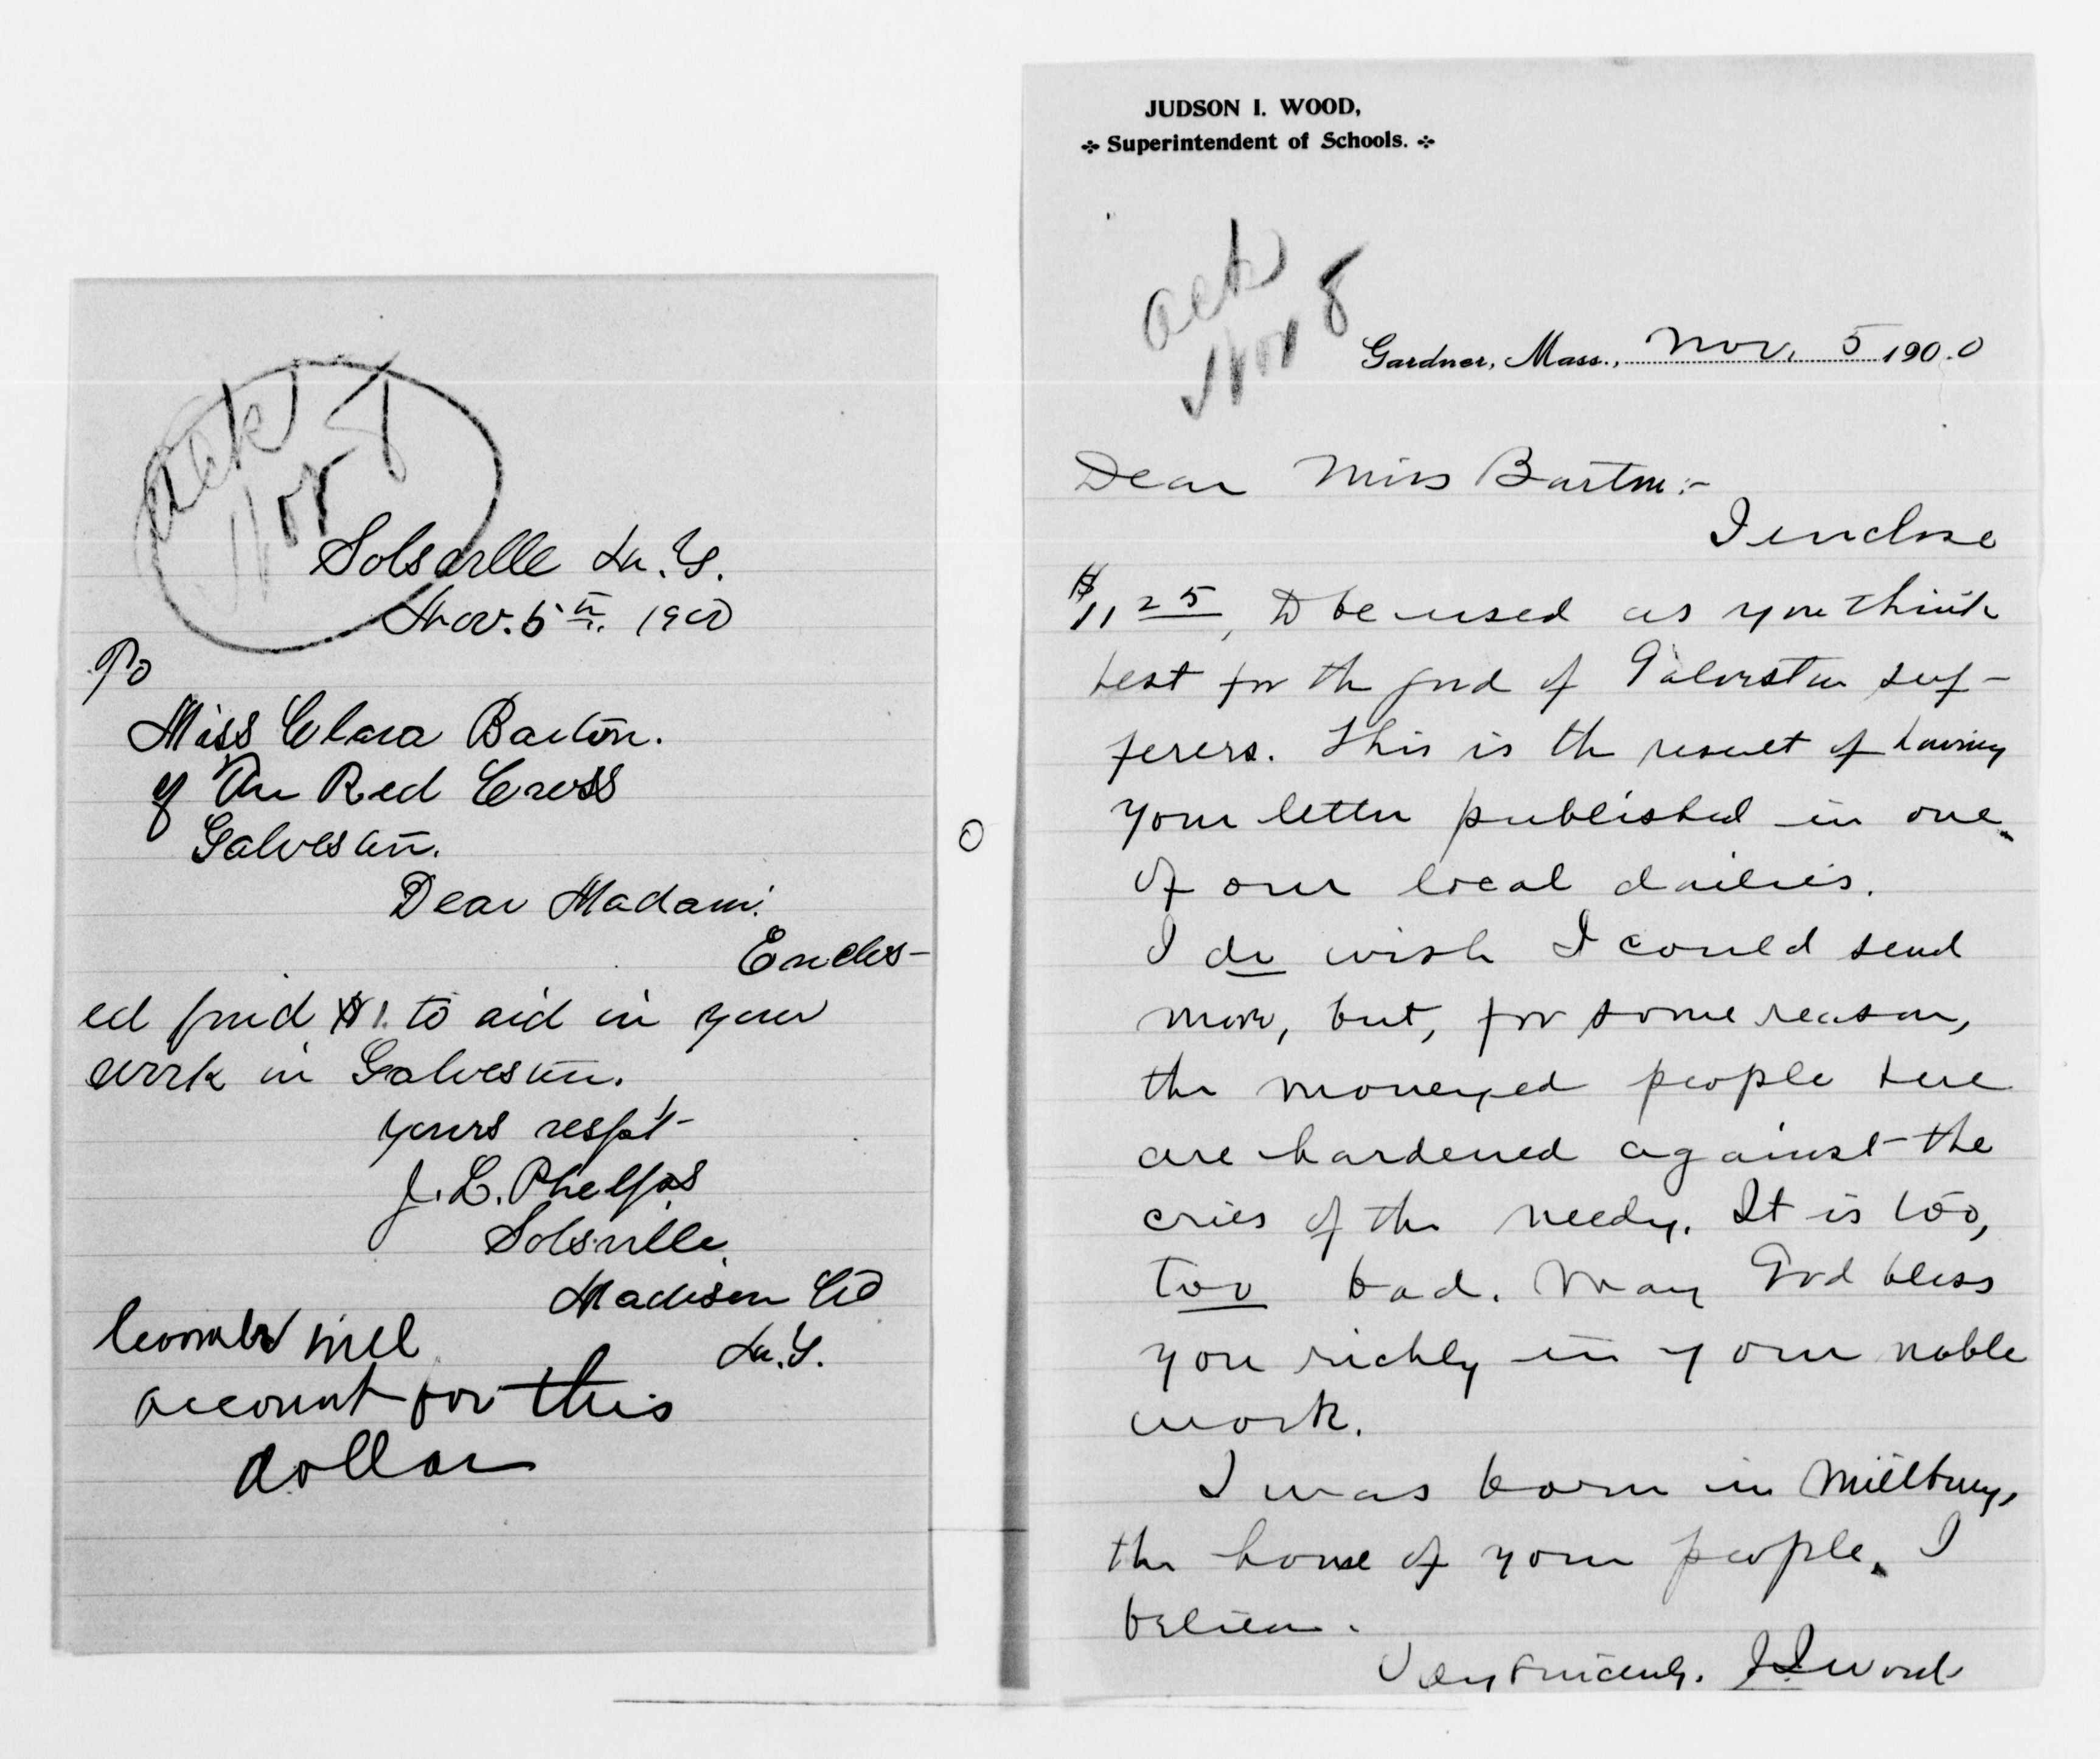 ack
Nov 8
Solsville N.Y.
Nov. 5th. 1900
To
Miss Clara Barton.
of The Red Cross
Galveston.
Dear Madam:
Enclos-
ed find $1. to aid in your
work in Galveston.
Yours respt-
J. L. Phelps
Solsville
Madison Co
N.Y.
will
account for this
dollar
JUDSON I. WOOD,
Superintendent of Schools.
ack
Nov 8
Gardner, Mass., Nov. 5 1900
Dear Miss Barton:-
I enclose
$11 25, to be used as you think
best for the good of Galveston suf-
ferers. This is the result of having
your letter published in one
of our local dailies.
I do wish I could send
more, but, for some reason,
the moneyed people here
are hardened against the
cries of the needy. It is too,
too bad. May God bless
you richly in your noble
work.
I was born in Millbury,
the home of your people, I
believe.
Very sincerely, J. I. Wood